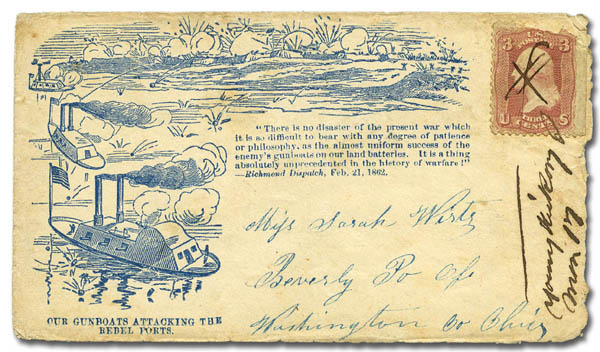 3 U.S. POSTAGE 3
U THREE S
CENTS
"There is no disaster of the present war which
it is so difficult to bear with any degree of patience
or philosophy, as the almost uniform success of the
enemy's gunboats on our land batteries. It is a thing
absolutely unprecedented in the history of warfare!"
—Richmond Dispatch, Feb. 21, 1862.
Miss Sarah Wirts
Beverly Po Ofc
Washington Co Ohio
OUR GUNBOATS ATTACKING THE
REBEL PORTS.
Young Hickory
12